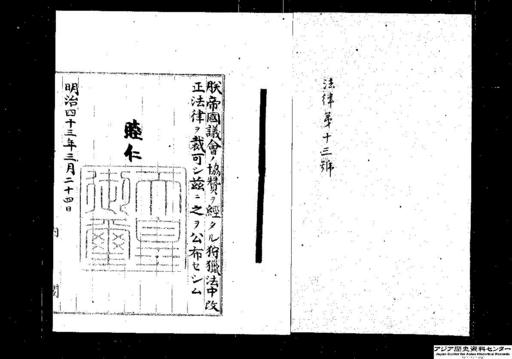 法律第十三號
朕帝國議會ノ協贊ヲ經タル狩獵法中改
正法律ヲ裁可シ茲ニ之ヲ公布セシム
睦仁
天皇御璽
明治四十三年三月二十四日
内閣
アジア歴史資料センター
Japan Center for Asian Historical Records